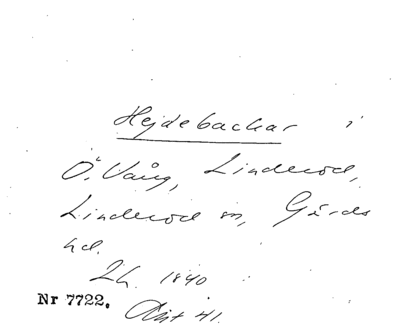 Hejdebackar i
Ö. Vång, Linderöd,
Linderöd sn, Gärds
hd.
Lh. 1840
Nr 7722. Akt 41.